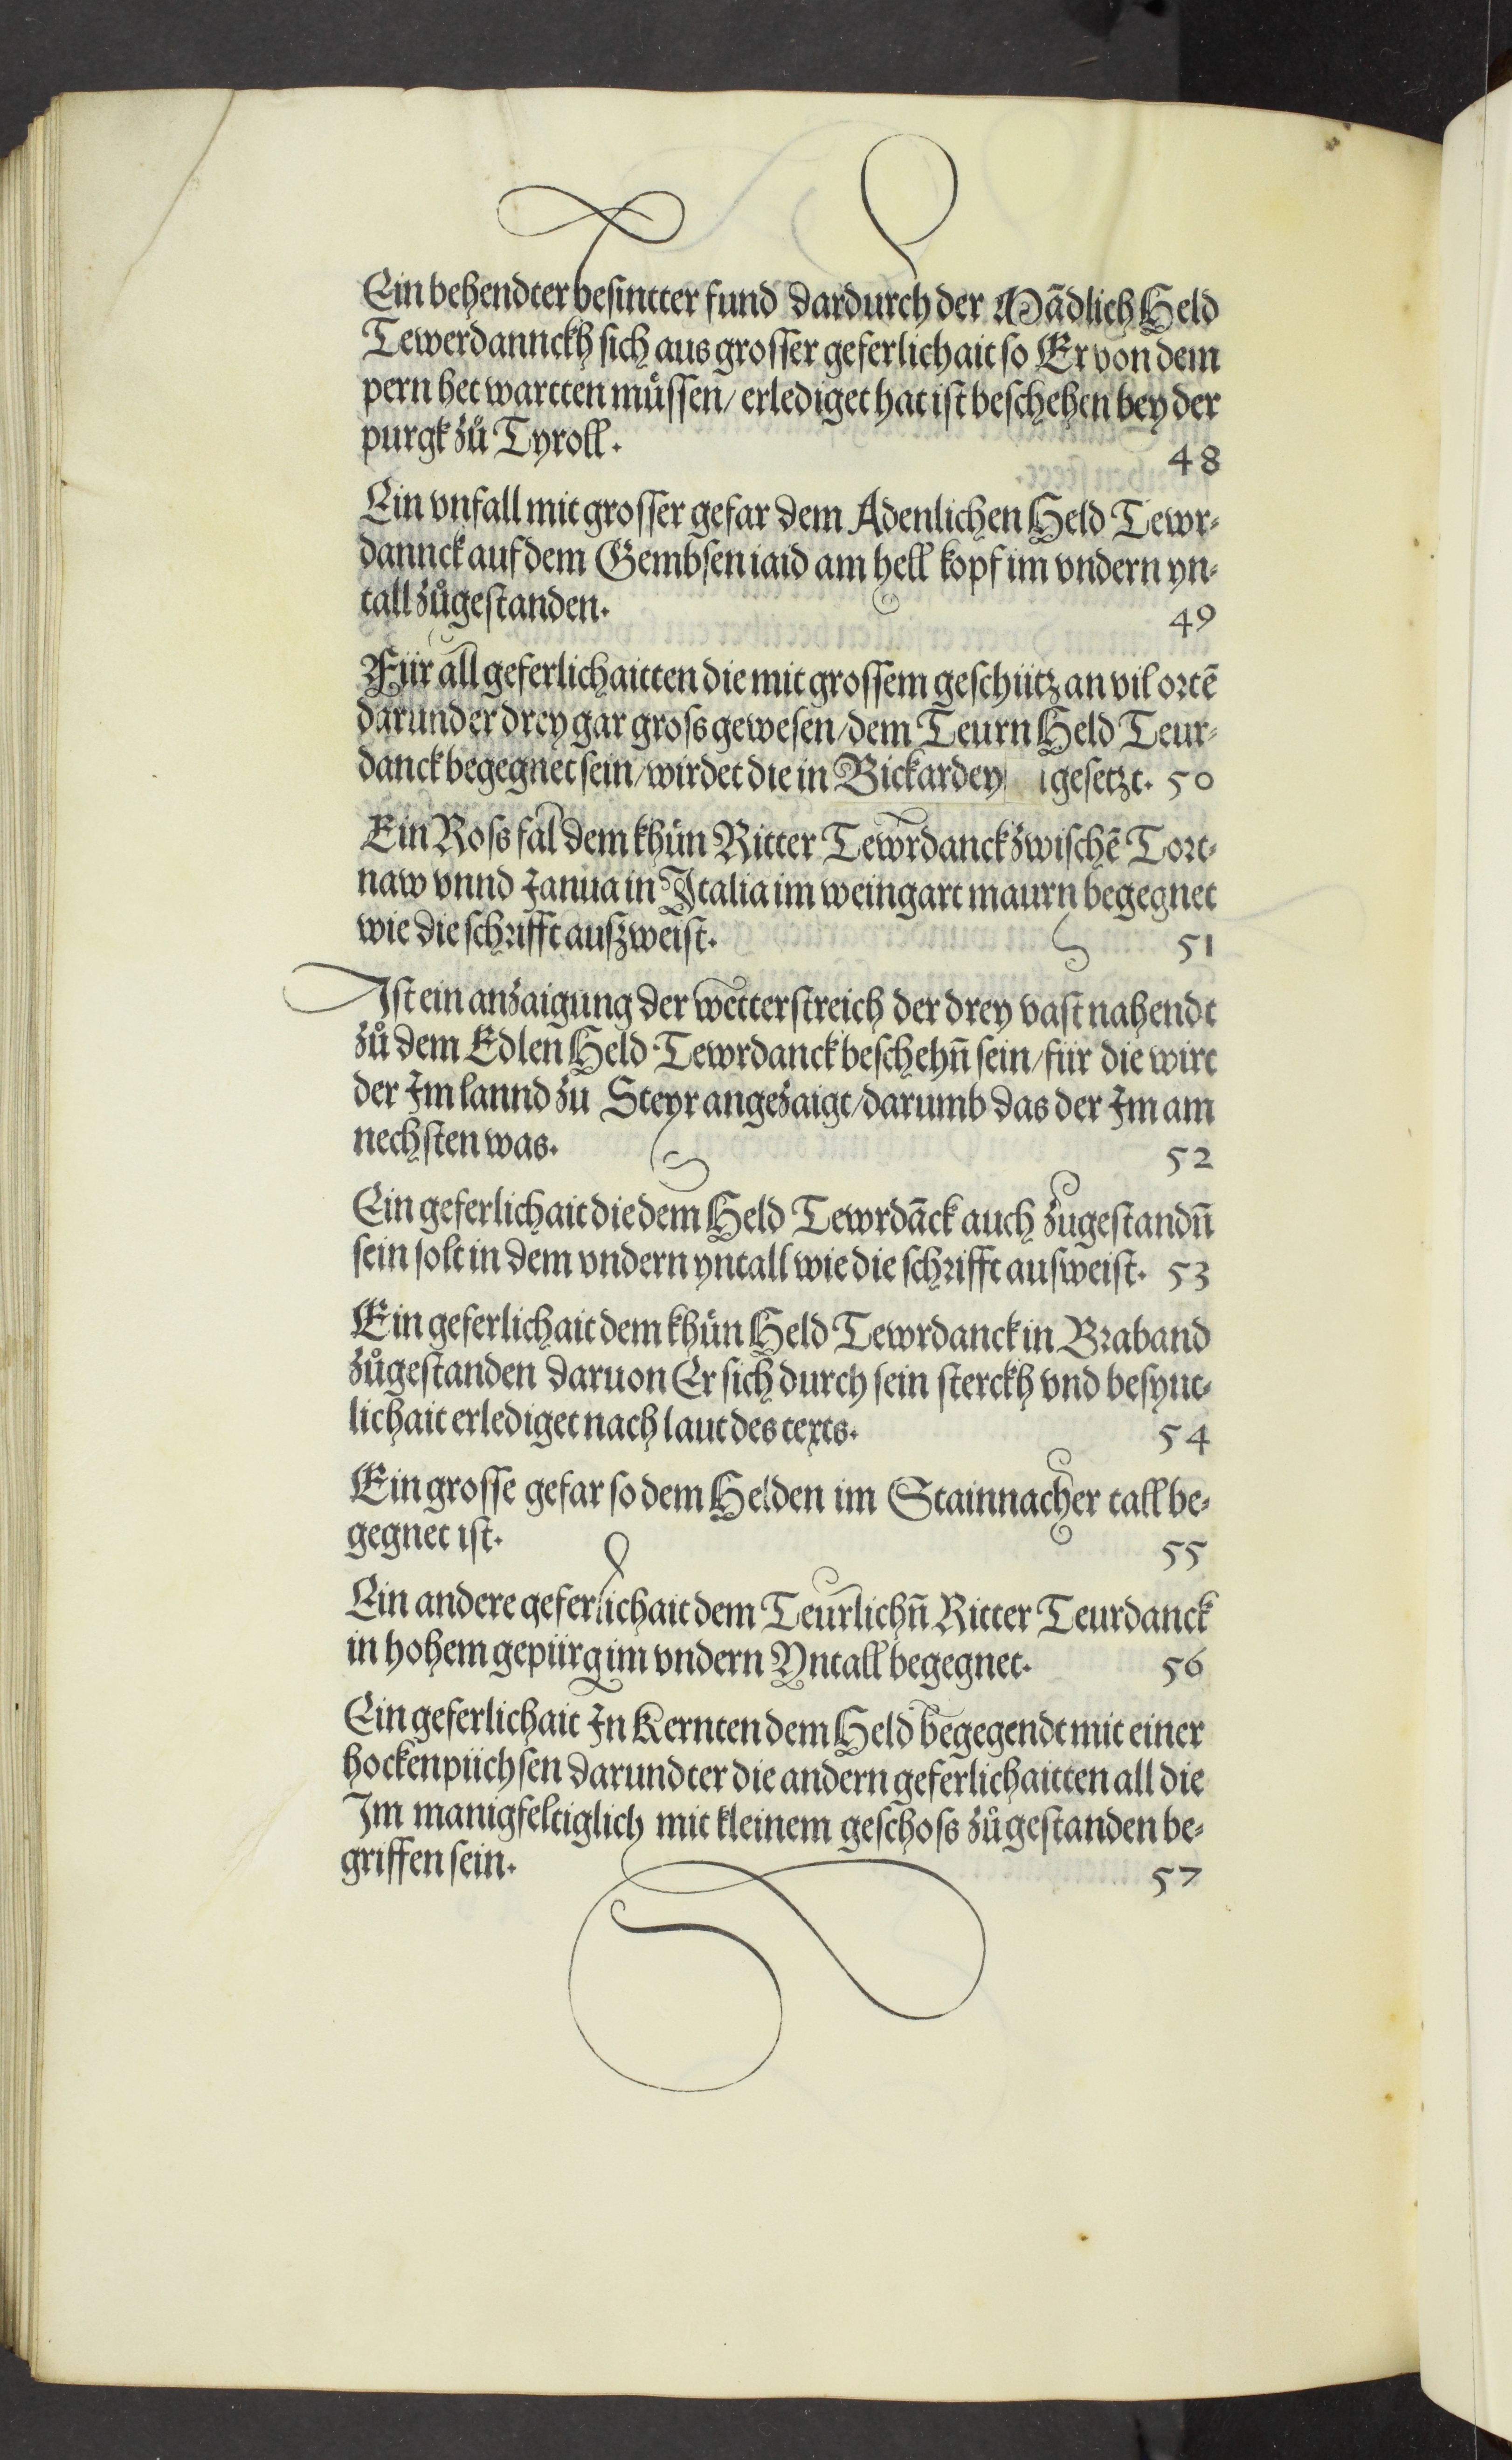 Ein behendter besintter fund dardurch der Mãdlich Held
Tewerdannckh sich aus grosser geferlichait so Er von dem
pern het wartten müssen/ erlediget hat ist beschehen bey der
purgk zů Tyroll. 48
Ein vnfall mit grosser gefar dem Adenlichen Held Tewr⸗
dannck auf dem Gembsen iaid am hell kopf im vndern yn⸗
tall zůgestanden. 49
Für all geferlichaitten die mit grossem geschütz an vil ortẽ
darunder drey gar gross gewesen/ dem Teurn Held Teur⸗
danck begegnet sein/ wirdet die in Bickardey gesetzt. 50
Ein Ross fal dem khün Ritter Tewrdanck zwischẽ Tort⸗
naw vnnd Janua in Italia im weingart maurn begegnet
wie die schrifft auszweist. 51
Ist ein anzaigung der wetterstreich der drey vast nahendt
zů dem Edlen Held Tewrdanck beschehñ sein/ für die wirt
der Im lannd zu Steyr angezaigt/ darumb das der Im am
nechsten was. 52
Ein geferlichait die dem Held Tewrdãck auch zugestandñ
sein solt in dem vndern yntall wie die schrifft ausweist. 53
Ein geferlichait dem khün Held Tewrdanck in Braband
zůgestanden daruon Er sich durch sein sterckh vnd besynt⸗
lichait erlediget nach laut des texts. 54
Ein grosse gefar so dem Helden im Stainnacher tall be⸗
gegnet ist. 55
Ein andere geferlichait dem Teurlichñ Ritter Teurdanck
in hohem gepürg im vndern Yntall begegnet. 56
Ein geferlichait In Kernten dem Held begegendt mit einer
hockenpüchsen darundter die andern geferlichaitten all die
Im manigfeltiglich mit kleinem geschoss zůgestanden be⸗
griffen sein. 57